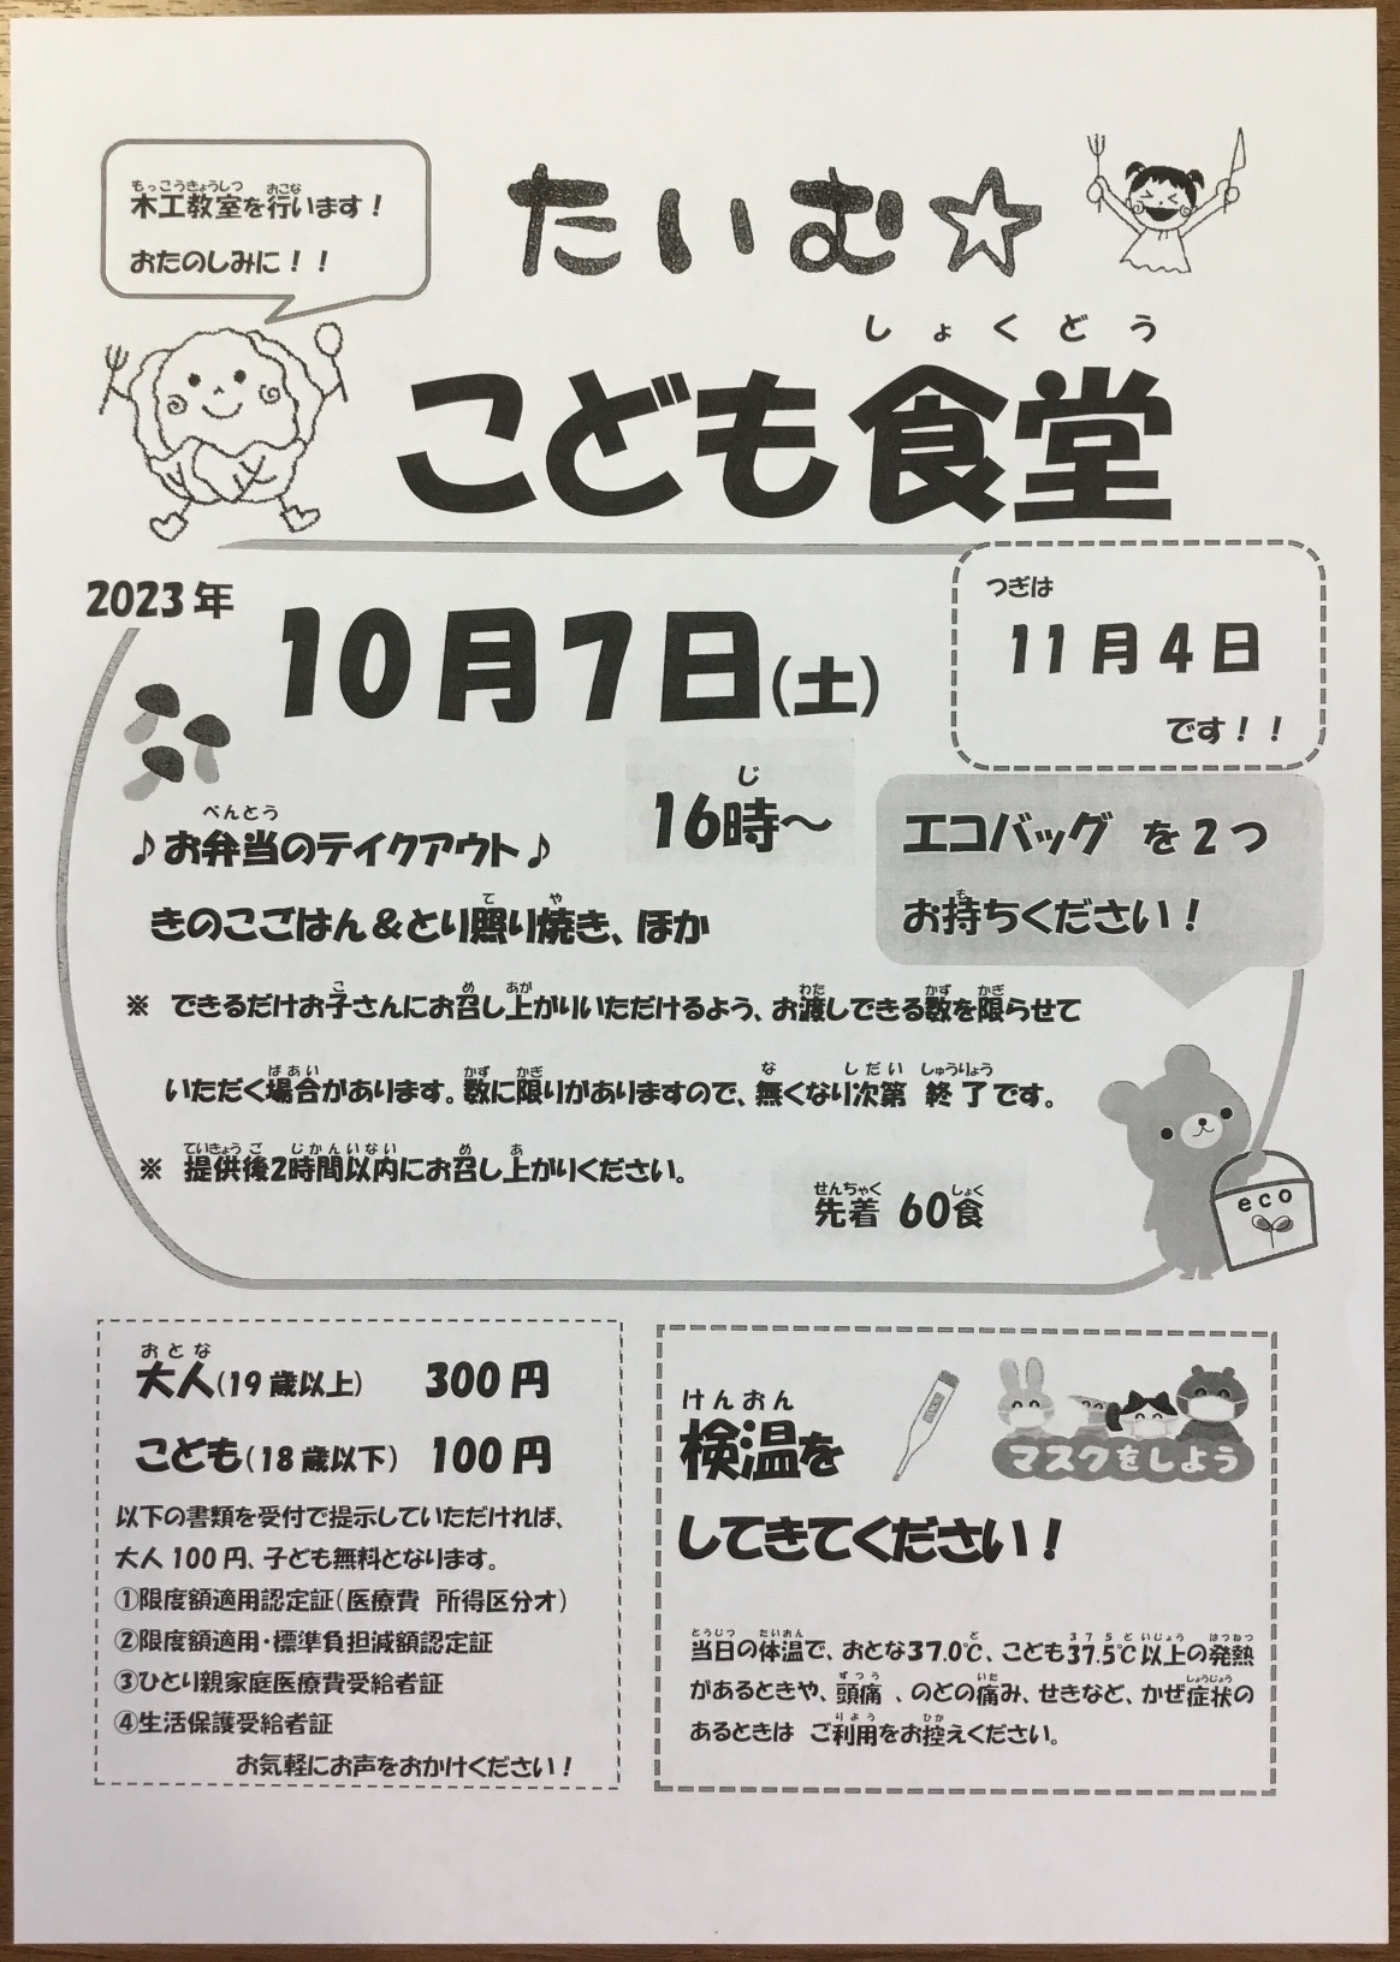 木工教室を行います！
おたのしみに！！
たいむ☆
こども食堂
2023年
10月7日(土)
つぎは
11月4日
です！！
16時～
♪お弁当のテイクアウト♪
きのこごはん＆とり照り焼き、ほか
エコバッグ を2つ
お持ちください！
※ できるだけお子さんにお召し上がりいただけるよう、お渡しできる数を限らせて
いただく場合があります。数に限りがありますので、無くなり次第 終了です。
※ 提供後2時間以内にお召し上がりください。
先着 60食
eco
大人(19歳以上) 300円
こども(18歳以下) 100円
以下の書類を受付で提示していただければ、
大人100円、子ども無料となります。
①限度額適用認定証(医療費 所得区分オ)
②限度額適用・標準負担減額認定証
③ひとり親家庭医療費受給者証
④生活保護受給者証
お気軽にお声をおかけください！
検温を
してきてください！
マスクをしよう
当日の体温で、おとな37.0℃、こども37.5℃以上の発熱
があるときや、頭痛、のどの痛み、せきなど、かぜ症状の
あるときは ご利用をお控えください。